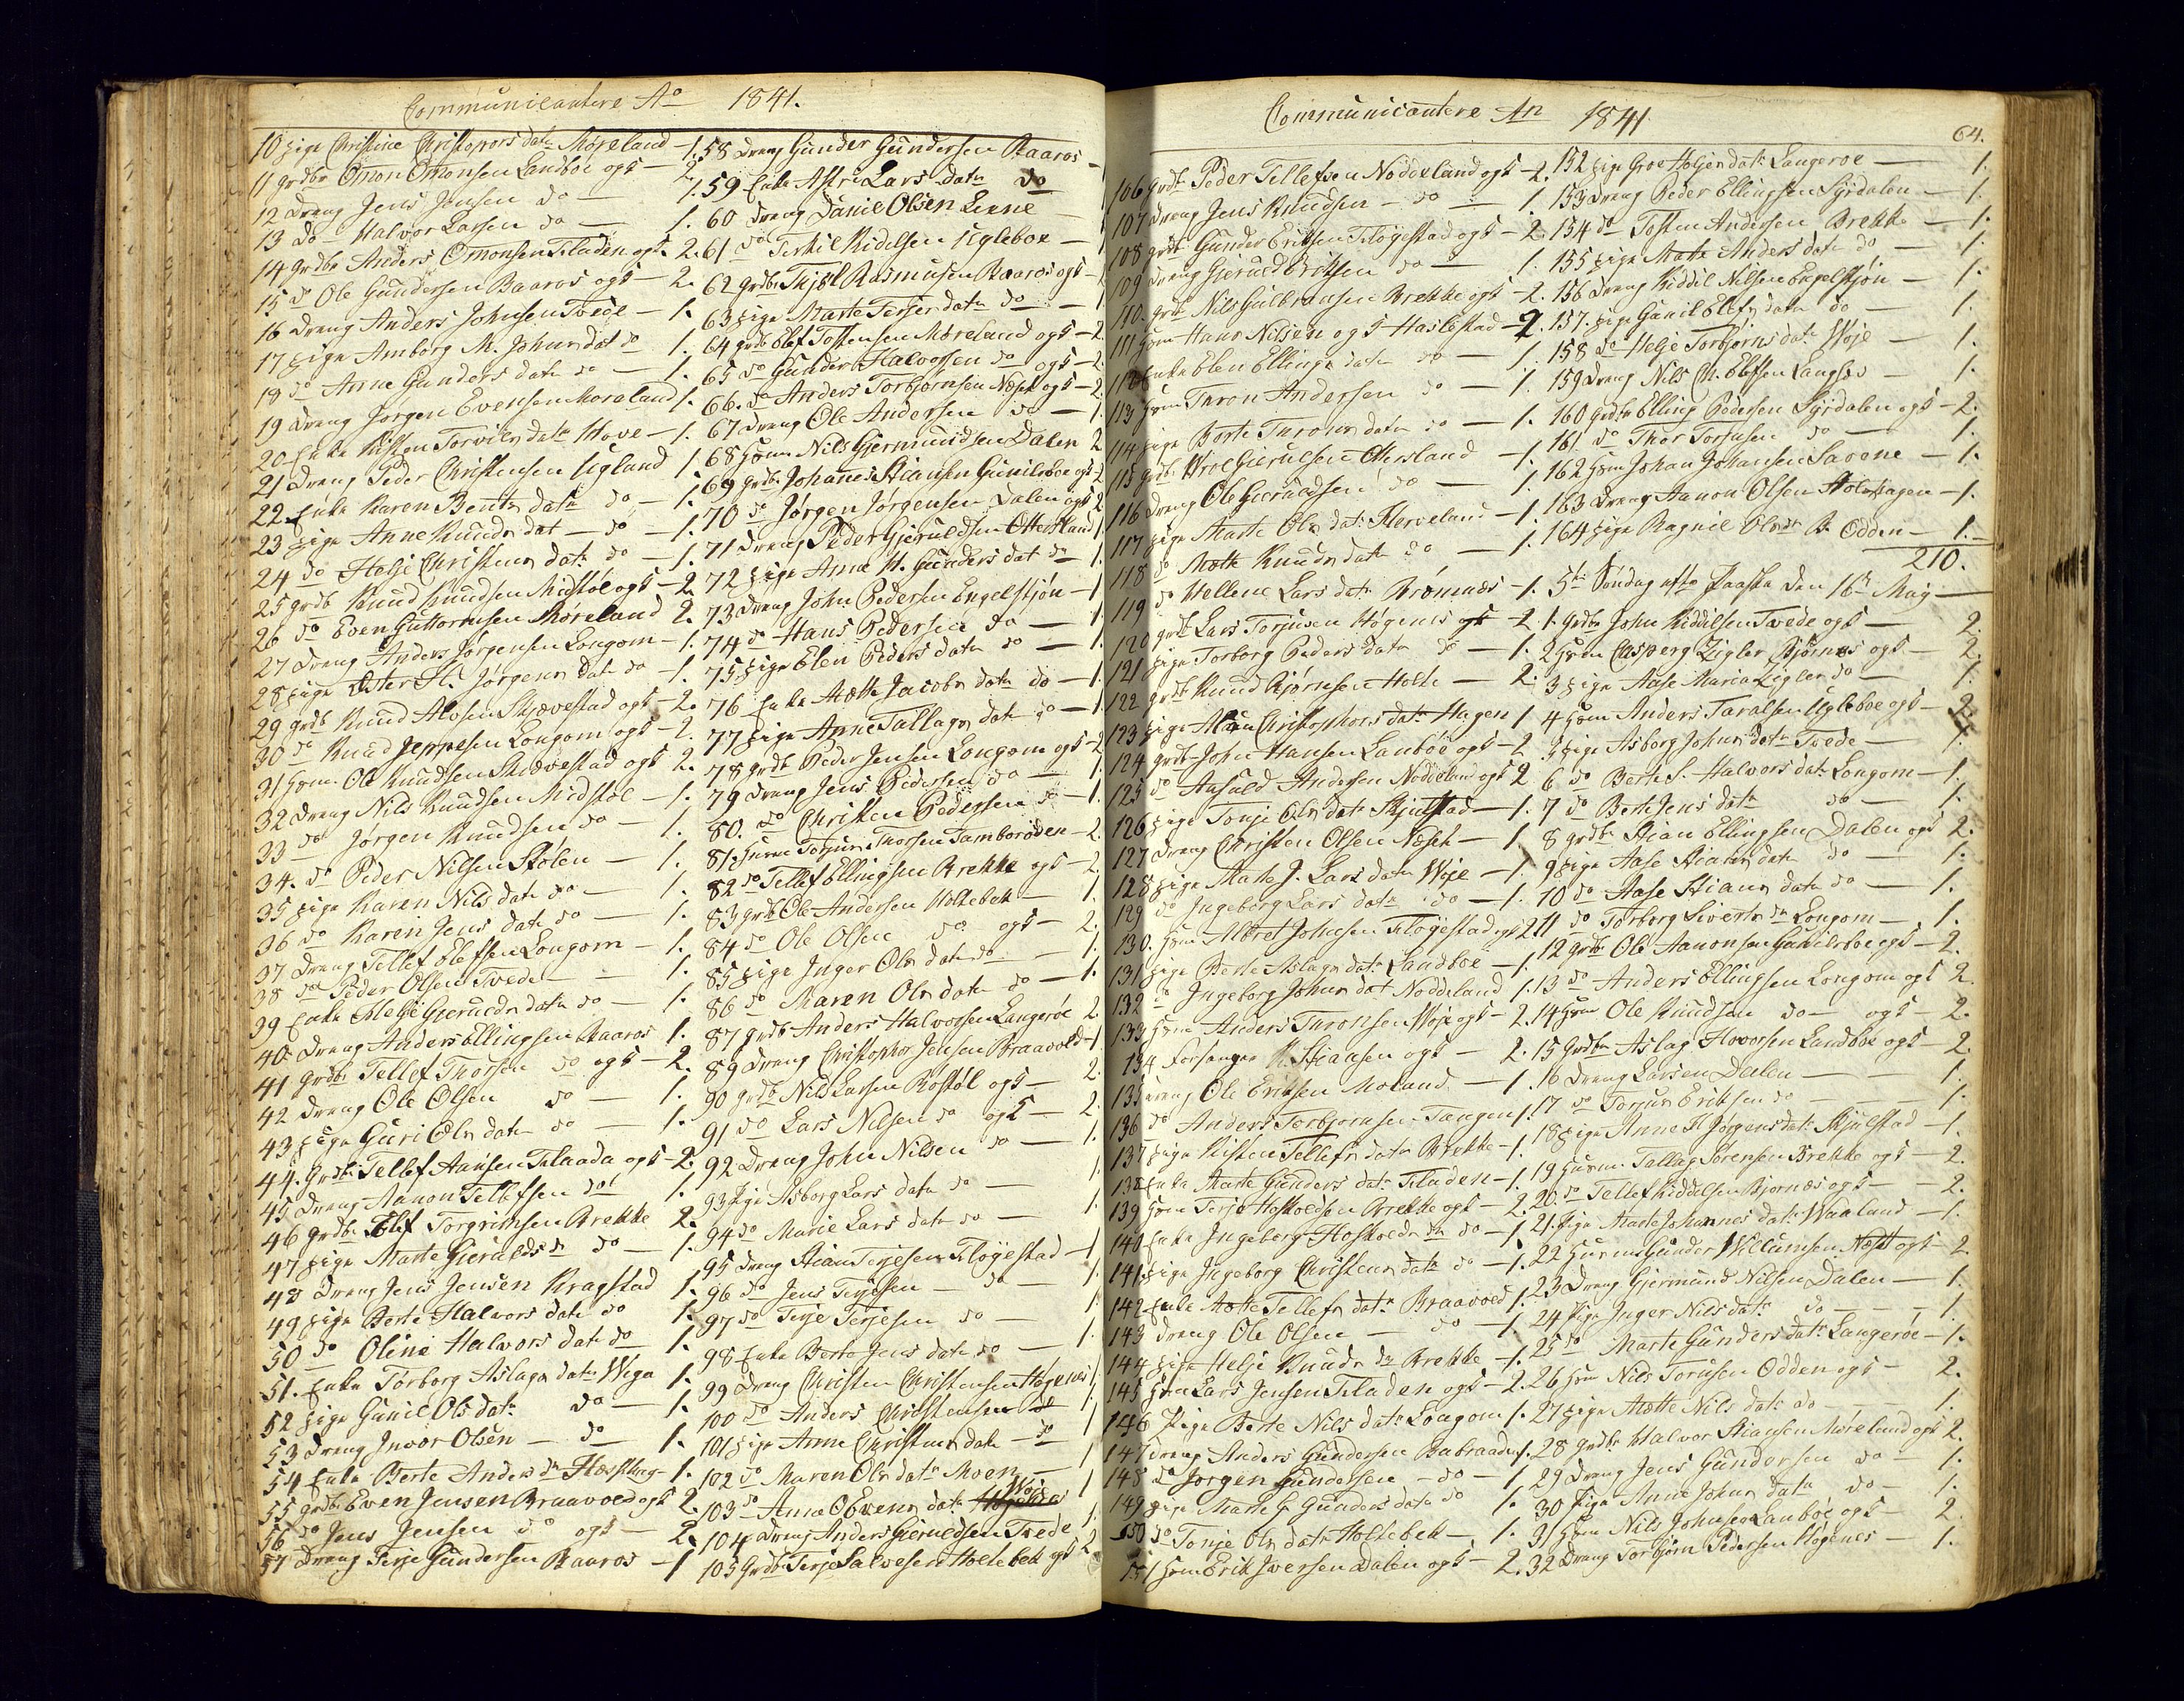 Communicantere Ao 1841.
10 pige Christine Christophers datr Møreland - 1.
11 grdbr Omon Omonsen Landboe ogt - 2
12 dreng Jens Jensen do - 1.
13 do Halvor Larsen do - 1.
14 grdbr Anders Omonsen Fladen ogt. 2.
15 do Ole Gundersen Baaros ogt - 2.
16 Dreng Anders Johnsen Tvede - 1.
17 pige Amborg M. Johns dat do 1.
18 do Anne Gunders datr do - 1.
19 dreng Jørgen Evensen Moreland 1.
20 Enke Kisten Torvils datr Hove - 1.
21 dreng Peder Christensen Ugland 1
22 Enke Karen Bents datr do - 1.
23 pige Anne Knuds dat - do - 1.
24 do Helje Christens datr do - 1.
25 grdb Knud Knudsen Midstøl ogt - 2.
26 do Even Guttormsen Møreland 2.
27 dreng Anders Jørgensen Longom - 1.
28 pige Ester H. Jørgens dat do - 1.
29 grdb Knud Alvsen Skjævestad ogt - 2.
30 do Knud Jeppesen Longom ogt - 2.
31 Hsm. Ole Knudsen Skiævestad ogt 2.
32 Dreng Nils Knudsen Midstøl - 1.
33 do Jørgen Knudsen do - 1.
34. do Peder Nilsen Stølen - 1.
35 pige Karen Nils datr do - 1.
36 do Karen Jens datr do - 1.
37 Dreng Tellef Elefsen Longom - 1.
38 do Peder Olsen Tvede - 1.
39 Enke Helje Gjeruls datr do - 1.
40 Dreng Anders Ellingsen Baaros 1.
41 Grdbr Tellef Thorsen do ogt - 2.
42 Dreng Ole Olsen do - 1.
43 pige Guri Ols datr do - 1.
44. Grdbr Tellef Aansen Flaada ogt - 2.
45 dreng Aanon Tellefsen do 1.
46 grdbr Elef Torgrimsen Brekke 2.
47 pige Marte Gjeralds dr do - 1.
48 dreng Jens Jensen Kragstad 1.
49 pige Berte Halvors datr do 1.
50 do Oline Halvors dat do 1.
51. Enke Torborg Aslags datr Wege 1.
52 pige Gunil Ols datr do - 1.
53 Dreng Invor Olsen - do 1.
54 Enke Berte Anders dr - 1.
55 grdbr Even Jensen Braavold ogt 2.
56 do Jens Jensen do ogt - 2.
57 Dreng Terje Gundersen Baaros - 1
58 dreng Gunder Gundersen Baaros
59 Enke Astri Lars datr do
60 dreng Daniel Olsen Lunne
61 do Terkil Kidelsen Ugleboe -
62 grdbr Kjøl Rasmusen Baaros ogt -
63 pige Marte Terjes datr do - 1
64 grdb Elef Tostensen Møreland ogt - 2
65 do Gunder Halvorsen do ogt - 2.
66. do Anders Torbjørnsen Næset ogt - 2.
67 Dreng Ole Andersen do - 1.
68 Hsm. Nils Gjermundsen Dalen 2
69 grdbr Johanes Stiansen Gunilsboe ogt 2
70 do Jørgen Jørgensen Dalen ogt 2
71 Dreng Peder Gjeruldsen Ottersland 1
72 pige Anne M. Gunders dat do 1.
73 Dreng John Pedersen Engelstjøn - 1
74 do Hans Pedersen do - 1.
75 pige Elen Peders datr do - 1.
76 Enke Mette Jacobs datr do - 1.
77 pige Anne Tallags datr do - 1
78 grdb Peder Jensen Longom ogt - 2
79 Dreng Jens Pedersen do - 1.
80. do Christen Pedersen do - 1.
81. Hsm Torjus Thorsen Tamborøden - 2.
82 do Tellef Ellingsen Brekke ogt - 2
83 grdb Ole Andersen Holtebek - 1
84 do Ole Olsen do ogt - 2.
85 pige Inger Ols datr do - 1.
86 do Maren Ols datr do - 1.
87 grdb Anders Halvorsen Langerøe 2
89 Dreng Christopher Jensen Braavold - 1
90 grdb Nils Larsen Røstøl ogt - 2.
91 do Lars Nilsen do ogt - 2
92 Dreng John Nilsen do - 1.
93 pige Asborg Lars datr do - 1
94 do Marie Lars datr do - 1
95 dreng Stian Terjesen Fløyestad - 1
96 do Jens Terjesen - do - 1.
97 do Terje Terjesen do - 1
98 Enke Berte Jens datr do - 1.
99 Dreng Christen Christensen Høgenes 1
100 do Anders Christensen do 1
101 pige Anne Christens datr - do 1
102 do Maren Ols datr Moen - 1
103 do Anne O Evens datr Woje 1.
104 Dreng Anders Gjeruldsen Tvede 1.
105 Grdbr Terje Salvesen Holtebek ogt 2
Communicantere An 1841
64.
106 grdbr Peder Tellefsen Noddeland ogt - 2.
107 Dreng Jens Knudsen - do - 1.
108 grdbr Gunder Eriksen Fløyestad ogt - 2.
109 dreng Gjeruld Eriksen do - 1.
110. grdb Nils Gulbransen Brekke ogt - 2.
111 Hsm Hans Nilsen ogt Haslestad - 2.
112 Enke Elen Ellings datr do - 1.
113 Hsm Thron Andersen do - 1.
114 pige Berte Throns datr do - 1.
115 grdbr Wroel Gjerulsen Ottersland - 1.
116 dreng Ole Gjeruldsen do - 1.
117 pige Marte Ols datr Flerveland - 1.
118 do Mette Knuds datr do - 1.
119 do Hellene Lars datr Brømnæs - 1.
120 grdb Lars Torjusen Høgenes ogt - 2
121 pige Torborg Peders datr do - 1.
122 grdb Knud Bjørnsen Holte - 2.
123 pige Christophers datr Hagen 1
124 grdb John Hansen Lanboe ogt - 2
125 do Ausuld Andersen Noddeland ogt 2
126 pige Tonje Ols datr Skjulstad - 1.
127 dreng Christen Olsen Næset - 1
128 pige Marte J. Lars datr Woje - 1.
129 do Ingeborg Lars datr do - 1.
130. Hsm Johnsen Fløyestad ogt 2
131 pige Berte Aslags datr Landboe - 1.
132 do Ingeborg Johns dat Noddeland 1.
133 Hsm Anders Thronsen Woje ogt - 2.
134 Forsanger K. Stiansen ogt - 2.
135 dreng Ole Eriksen Moland - 1.
136 do Anders Torbjørnsen Tangen 1.
137 pige Kisten Tellefs datr Brekke - 1.
138 Enke Marte Gunders datr Fladen - 1.
139 Hsm Terje Hoskoldsen Brekke ogt - 2.
140 Enke Ingeborg Hoskolds dr do - 1.
141. pige Ingeborg Christens datr do - 1.
142 Enke Mette Tellefs datr Braavold 1.
143 dreng Ole Olsen - do - 1.
144 pige Helje Knuds dr Brekke - 1.
145 Hsm Lars Jensen Fladen ogt - 2.
146 Pige Berte Nils datr Longom 1.
147 dreng Anders Gundersen Babraaden 1.
148 do Jørgen Gundersen - do - 1
149 pige Marte G Gunders datr do 1.
150 do Tonje Ols datr Holtebek - 1.
151 Hsm Erik Iversen Dalen ogt - 2.
152 pige Groe Holjers datr Langeroe - 1.
153 dreng Peder Ellingsen Syrdalen - 1.
154 do Tosten Andersen Brekke - 1.
155 pige Mette Anders datr do - 1.
156 Dreng Kiddil Nilsen Engelstjøn - 1.
157. pige Gunil Elefs datr do 1.
158 do Helje Torbjørns datr Woje - 1.
159 Dreng Nils Ch. Elefsen Langsøe - 1.
160 grdbr Elling Pedersen Syrdalen ogt - 2.
161 do Thor Torjusen do - 1.
162 Hsm Johan Johansen Savene - 1.
163 Dreng Aanon Olsen Holmhagen - 1.
164 pige Ragnil Ols dr B. Odden - 1.-
210.
5te Søndag efter Paaske den 16de Maij
1. Grdbr John Kiddilsen Tvede ogt - 2.
2 Hsm Casperg Zigler Bjørnes ogt - 2.
3 pige Aase Maria Zigler do - 1.
4 Hsm Anders Taralsen Ugleboe ogt - 2.
5 pige Asborg Johns datr Tvede - 1.
6 do Berte S. Halvors datr Longom - 1.
7 do Berte Jens datr do - 1.
8 grdbr Stian Ellingsen Dalen ogt 2.
9 pige Aase Stians datr do - 1.
10 do Aase Stians datr do - 1.
11 do Torborg Siverts dr Longom - 1.
12 grdbr Ole Aanonsen Gunilsboe ogt - 2.
13 do Anders Ellingsen Longom ogt 2.
14 Hsm Ole Knudsen do - ogt - 2.
15 Grdbr Aslag Hovorsen Landboe ogt - 2.
16 Dreng Larsen Dalen - 1.
17 do Torjus Eriksen do - 1.
18 pige Anne H Jørgens datr Skjulstad - 1.
19 Husm Tallag Sørensen Brekke ogt - 2.
20. do Tellef Kiddelsen Bjornæs ogt - 2.
21. Pige Marte Johannes datr Waaland - 1.
22 Husm Gunder Willumsen Næset ogt - 2
23 Dreng Gjermund Nilsen Dalen - 1.
24 Pige Inger Nils datr do - 1.
25 do Marte Gunders datr Langerøe - 1.
26 Hsm Nils Torusen Odden ogt - 2.
27 pige Mette Nils datr do - 1.
28 Grdbr Halvor Stiansen Møreland ogt 2.
29 Dreng Jens Gundersen do - 1.
30 Pige Anne Johns datr do - 1.
31 Hsm Nils Johnsen Lanboe ogt - 2
32 Dreng Torbjørn Pedersen Høgenes - 1.